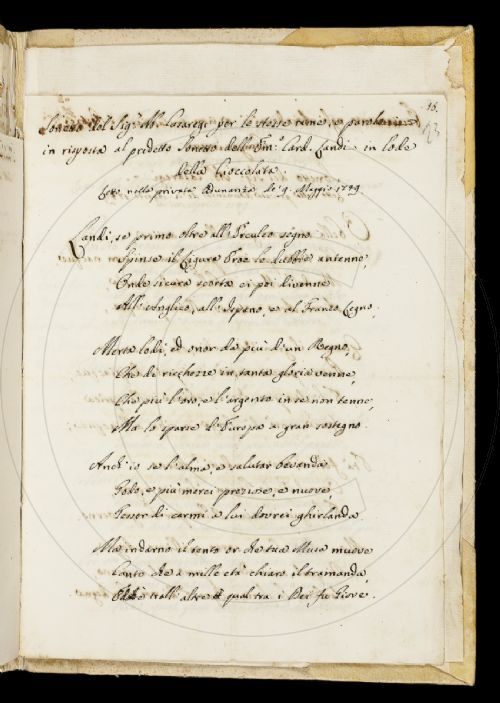 16.
23
Sonetto del Sig.r Ab. Casaregi per le stesse rime, e parole
in risposta al predetto Sonetto dell' Em.o Card. Landi in lode
della Cioccolata.
Letto nella privata Adunanza de' 9. Maggio
Landi, se primo oltre all' Erculeo segno
Spinse il Ligure Eroe le dubbie antenne,
Onde sicura scorta ei poi divenne
All' Anglico, all' Ispano, e al Franco Legno,
Merta lodi, ed onor da più d'un Regno,
Che di ricchezze in tanta gloria venne,
Che più l'oro, e l'argento in se non tenne,
Ma lo sparse d'Europa a gran sostegno.
Anch' io se l'alma, e salutar bevanda
Godo, e più merci preziose, e nuove,
Tesser di carmi a lui dovrei ghirlanda.
Ma indarno il tento or che tua Musa muove
Canto che a mille età chiaro il tramanda,
E trall' altre qual tra i Dei fu Giove.